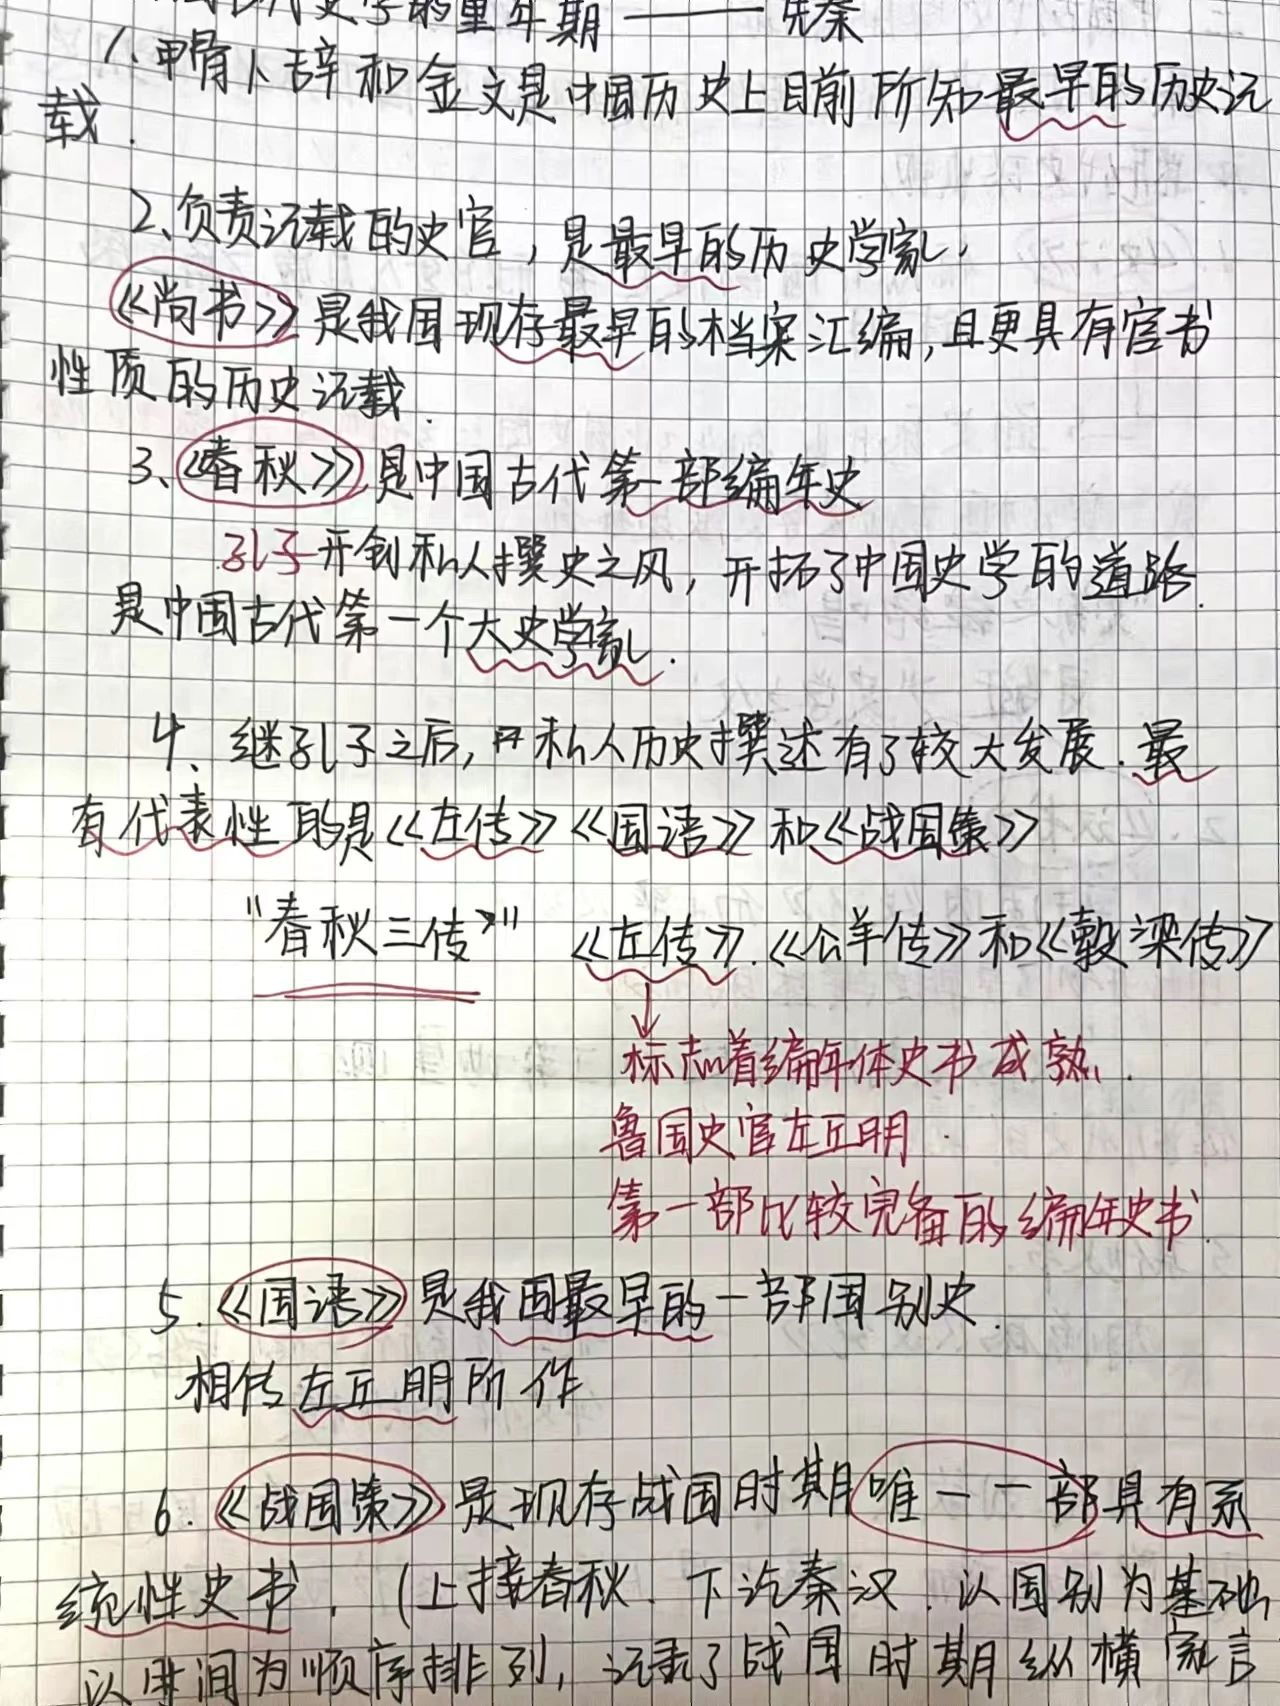 史学的童年期——先秦
1、甲骨卜辞和金文是中国历史上目前所知最早的历史记
载.
2、负责记载的史官,是最早的历史学家.
《尚书》是我国现存最早的档案汇编,且更具有官书
性质的历史记载.
3、《春秋》是中国古代第一部编年史
孔子开创私人撰史之风,开拓了中国史学的道路.
是中国古代第一个大史学家.
4、继孔子之后,私人历史撰述有了较大发展.最
有代表性的是《左传》《国语》和《战国策》
"春秋三传" 《左传》.《公羊传》和《穀梁传》
标志着编年体史书成熟.
鲁国史官左丘明.
第一部比较完备的编年史书
5.《国语》是我国最早的一部国别史.
相传左丘明所作
6.《战国策》是现存战国时期唯一一部具有系
统性史书.(上接春秋.下讫秦汉.以国别为基础
以时间为顺序排列,记录了战国时期纵横家言